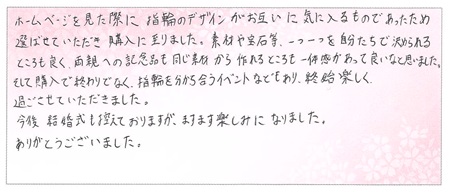 ホームページを見た際に 指輪のデザインがお互いに気に入るものであったため
選ばせていただき 購入に至りました。素材や宝石等、一つ一つを自分たちで決められる
ところも良く、両親への記念品も同じ素材から作れるところも一体感があって良いなと思いました。
そして購入で終わりでなく、指輪を分かち合うイベントなどもあり、終始楽しく
過ごさせていただきました。
今後 結婚式も控えておりますが、ますます楽しみになりました。
ありがとうございました。